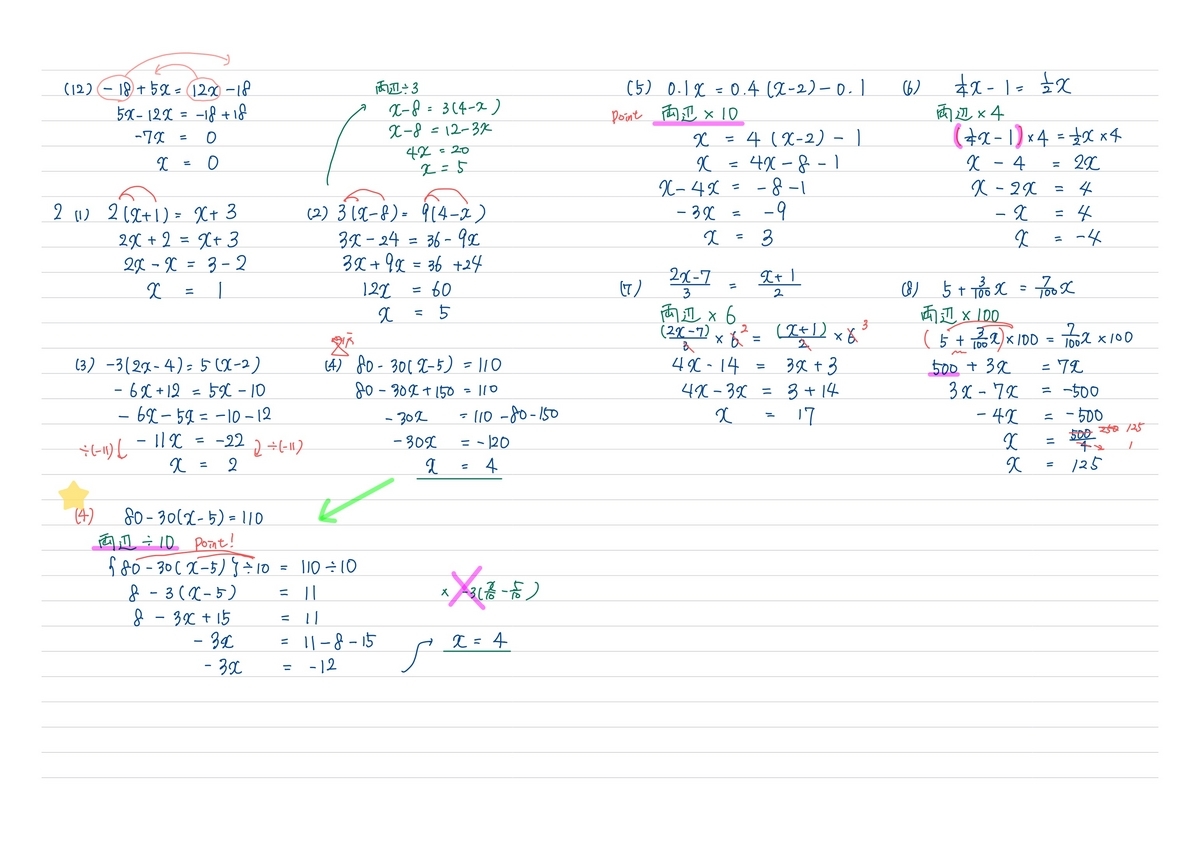 (12) -18 + 5x = 12x - 18
5x - 12x = -18 + 18
-7x = 0
x = 0
両辺÷3
x - 8 = 3(4 - x)
x - 8 = 12 - 3x
4x = 20
x = 5
2 (1) 2(x+1) = x + 3
2x + 2 = x + 3
2x - x = 3 - 2
x = 1
(2) 3(x-8) = 9(4-x)
3x - 24 = 36 - 9x
3x + 9x = 36 + 24
12x = 60
x = 5
(3) -3(2x-4) = 5(x-2)
-6x + 12 = 5x - 10
-6x - 5x = -10 - 12
÷(-11) -11x = -22 ÷(-11)
x = 2
(4) 80 - 30(x-5) = 110
80 - 30x + 150 = 110
-30x = 110 - 80 - 150
-30x = -120
x = 4
(4) 80 - 30(x-5) = 110
両辺 ÷10 Point!
{80 - 30(x-5)} ÷10 = 110 ÷ 10
8 - 3(x-5) = 11
× -3(x/10 - 5/10)
8 - 3x + 15 = 11
-3x = 11 - 8 - 15
-3x = -12
x = 4
(5) 0.1x = 0.4(x-2) - 0.1
Point 両辺 × 10
x = 4(x-2) - 1
x = 4x - 8 - 1
x - 4x = -8 - 1
-3x = -9
x = 3
(6) 1/4x - 1 = 1/2x
両辺 × 4
(1/4x - 1) × 4 = 1/2x × 4
x - 4 = 2x
x - 2x = 4
-x = 4
x = -4
(7) 2x-7/3 = x+1/2
両辺 × 6
(2x-7)/3 × 6 2 = (x+1)/2 × 6 3
4x - 14 = 3x + 3
4x - 3x = 3 + 14
x = 17
(8) 5 + 3/100x = 7/100x
両辺 × 100
(5 + 3/100x) × 100 = 7/100x × 100
500 + 3x = 7x
3x - 7x = -500
-4x = -500
x = 500/4 250 125 2 1
x = 125